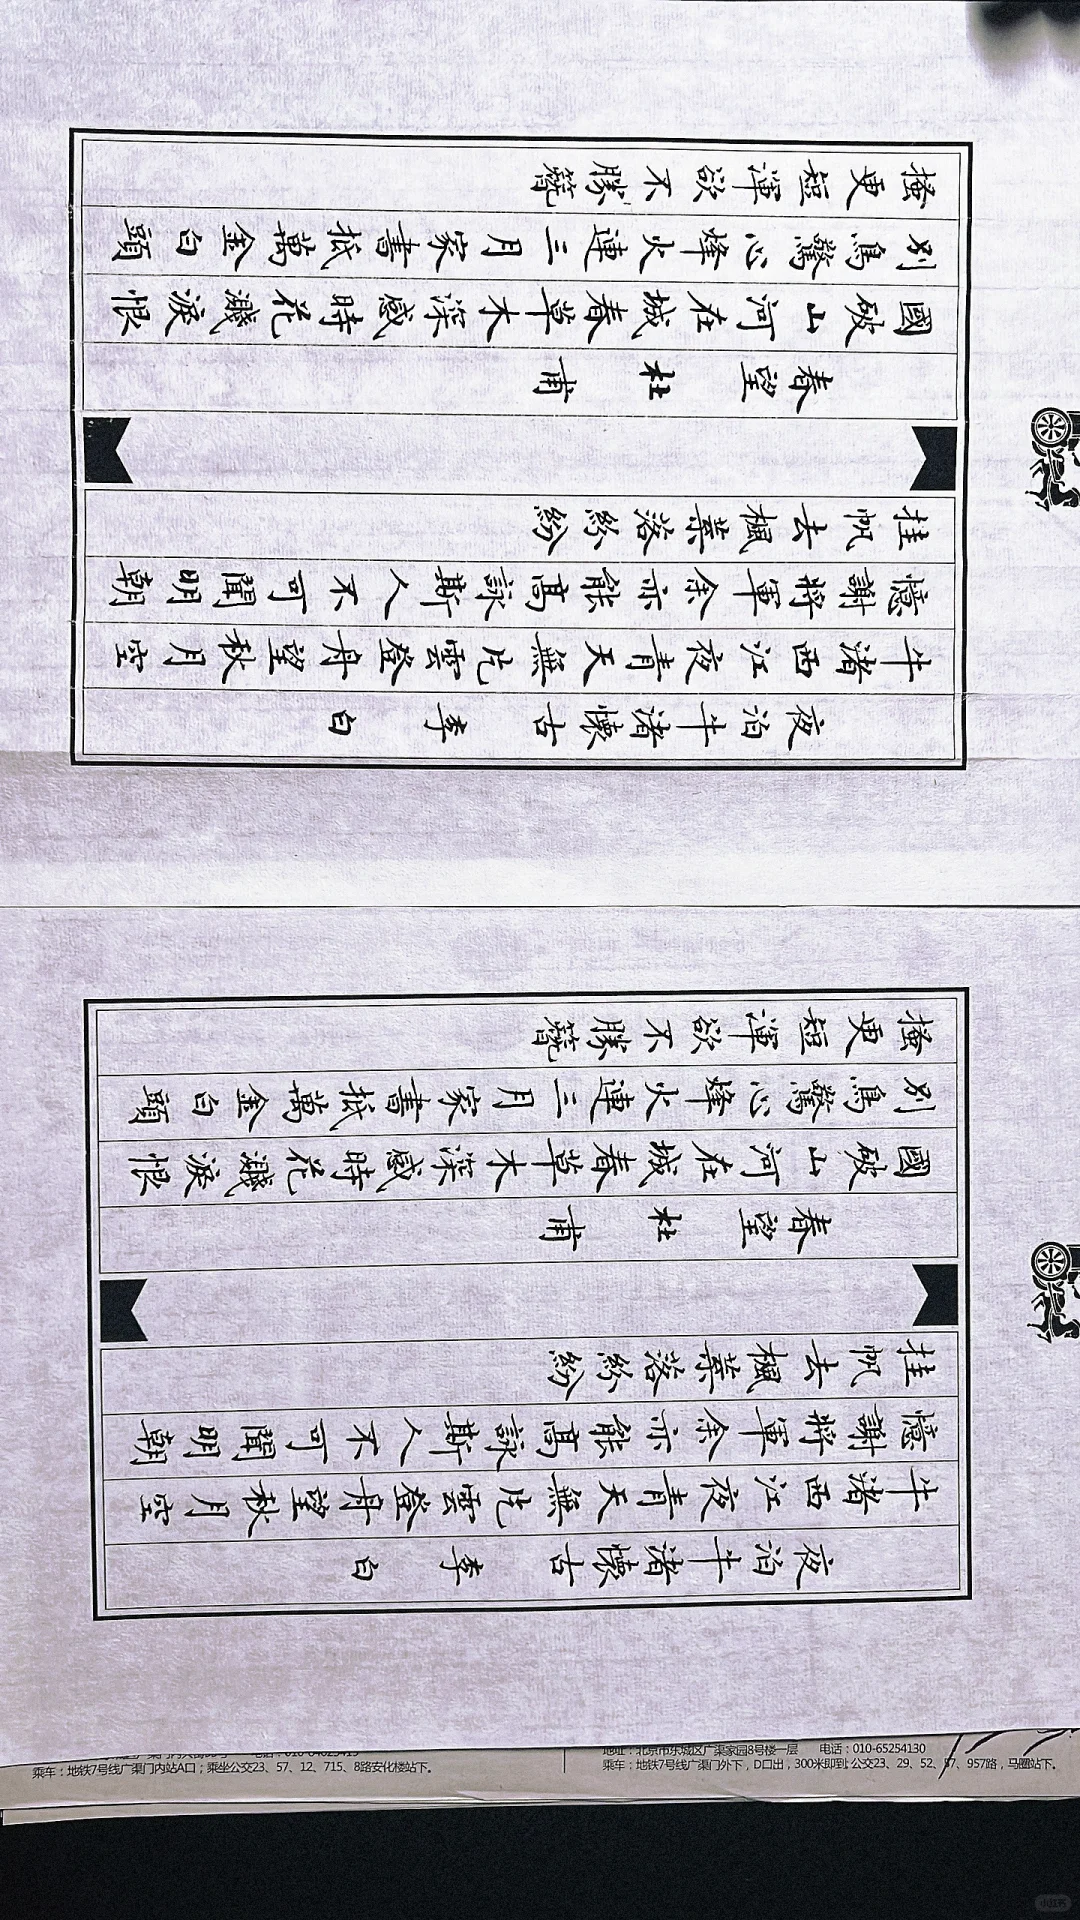 夜泊牛渚懷古 李白
牛渚西江夜青天無片雲登舟望秋月空
憶謝將軍余亦能高詠斯人不可聞明朝
挂帆去楓葉落紛紛
春望 杜甫
國破山河在城春草木深感時花濺淚恨
別鳥驚心烽火連三月家書抵萬金白頭
搔更短渾欲不勝簪
夜泊牛渚懷古 李白
牛渚西江夜青天無片雲登舟望秋月空
憶謝將軍余亦能高詠斯人不可聞明朝
挂帆去楓葉落紛紛
春望 杜甫
國破山河在城春草木深感時花濺淚恨
別鳥驚心烽火連三月家書抵萬金白頭
搔更短渾欲不勝簪
乘车：地铁7号线广渠门内站A口；乘坐公交23、57、12、715、8路安化楼站下。
地址：北京市东城区广渠家园8号楼一层 电话：010-65254130
乘车：地铁7号线广渠门外下，D口出，300米即到;公交23、29、52、57、957路，马圈站下。